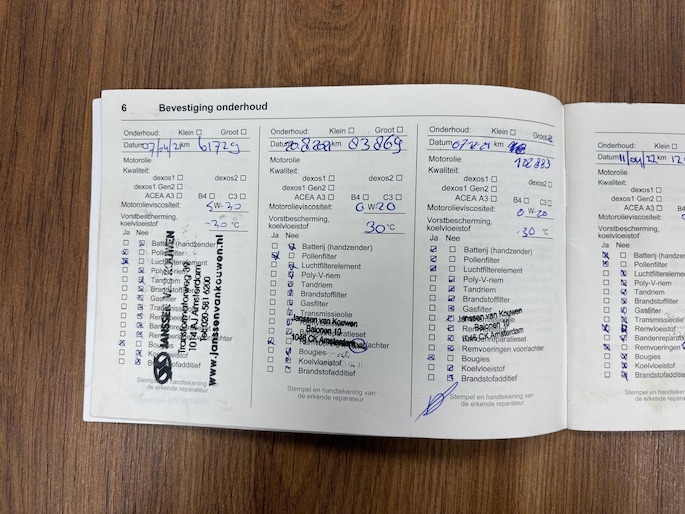 6 Bevestiging onderhoud
Onderhoud: Klein Groot
Datum 07/04/21 km 61729
Motorolie
Kwaliteit:
dexos1 dexos2
dexos1 Gen2
ACEA A3 B4 C3
Motorolieviscositeit: 5W-30
Vorstbescherming,
koelvloeistof -30 °C
Ja Nee
Batterij (handzender)
Pollenfilter
Luchtfilterelement
Poly-V-riem
Tandriem
Brandstoffilter
Gasfilter
Bougies
Koelvloeistof
Brandstofadditief
JANSSEN VAN KOUWEN
Transformatorweg
1014 AJ Amsterdam
Tel: 020-581 6200
www.janssenvankouwen.nl
Stempel en handtekening van
de erkende reparateur
Onderhoud: Klein Groot
Datum km 83869
Motorolie
Kwaliteit:
dexos1 dexos2
dexos1 Gen2
ACEA A3 B4 C3
Motorolieviscositeit: 0 W-20
Vorstbescherming,
koelvloeistof 30 °C
Ja Nee
Batterij (handzender)
Pollenfilter
Luchtfilterelement
Poly-V-riem
Tandriem
Brandstoffilter
Gasfilter
Transmissieolie
Janssen van Kouwen
Balonen 10
1046 CK Amsterdam
Bougies
Koelvloeistof
Brandstofadditief
Stempel en handtekening van
de erkende reparateur
Onderhoud: Klein Groot
Datum km
Motorolie 102883
Kwaliteit:
dexos1 dexos2
dexos1 Gen2
ACEA A3 B4 C3
Motorolieviscositeit: 0 W-20
Vorstbescherming,
koelvloeistof -30 °C
Ja Nee
Batterij (handzender)
Pollenfilter
Luchtfilterelement
Poly-V-riem
Tandriem
Brandstoffilter
Gasfilter
Janssen van Kouwen
Balonen 10
1046 CK Amsterdam
Remvoeringen voor/achter
Bougies
Koelvloeistof
Brandstofadditief
Stempel en handtekening van
de erkende reparateur
Onderhoud: Klein
Datum 11/04/22 km
Motorolie
Kwaliteit:
dexos1
dexos1 Gen2
ACEA A3
Motorolieviscositeit:
Vorstbescherming,
koelvloeistof
Ja Nee
Batterij (handze
Pollenfilter
Luchtfilterelement
Poly-V-riem
Tandriem
Brandstoffilter
Gasfilter
Transmissieolie
Remvloeistof
Bandenreparatie
Remvoeringen
Bougies
Koelvloeistof
Brandstofadditie
Stempel en han
de erkend